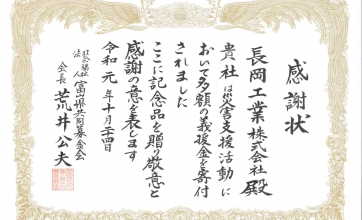 感謝状
長岡工業株式会社殿
貴社は災害支援活動に
おいて多額の義援金を寄付
されました
ここに記念品を贈り敬意と
感謝の意を表します
令和元年十月二十四日
社会福祉法人
富山県共同募金会
会長 荒井公夫